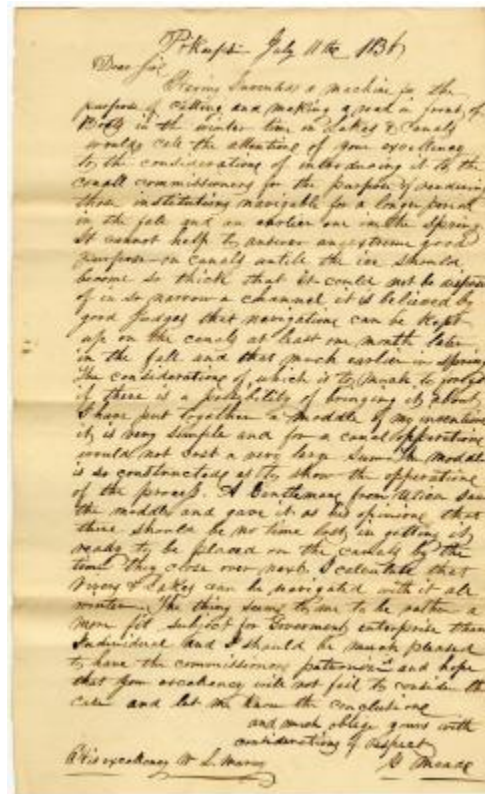 July 11th 1836
Dear Sir
Having Invented a machine for the
purpose of cutting and making a road in front of
Boats in the winter time in Lakes & Canals
would call the attention of your excellency
to the consideration of introducing it to the
canall commissioners for the purpose of rendering
those institutions navigable for a longer period
in the fall and an earlier one in the Spring
It cannot help to answer an extreme good
purpose on canals untill the ice should
become so thick that it could not be disposed
of in so narrow a channel it is believed by
good Judges that navigation can be kept
up on the canals at least one month later
in the fall and that much earlier in spring
The consideration of which is to much to
if there is a possibility of bringing it about
I have put together a moddle of my invention
it is very simple and for a canal opperation
would not cost a very large sum The moddle
is so constructed as to show the opperation
of the process. A Gentleman from Utica saw
the moddle and gave it as his opinion that
there should be no time lost in getting it
ready to be placed on the canals by the
time they close over next. I calculate that
rivers & Lakes can be navigated with it all
winter. The thing seems to me to be rather a
more fit subject for Goverment enterprise than
Individual and I should be much pleased
to have the commissioners and hope
that your excelancy will not fail to consider the
case and let me know the conclusion
and much oblige yours with
considerations of respect
His excellency W L Marcy
G Meade